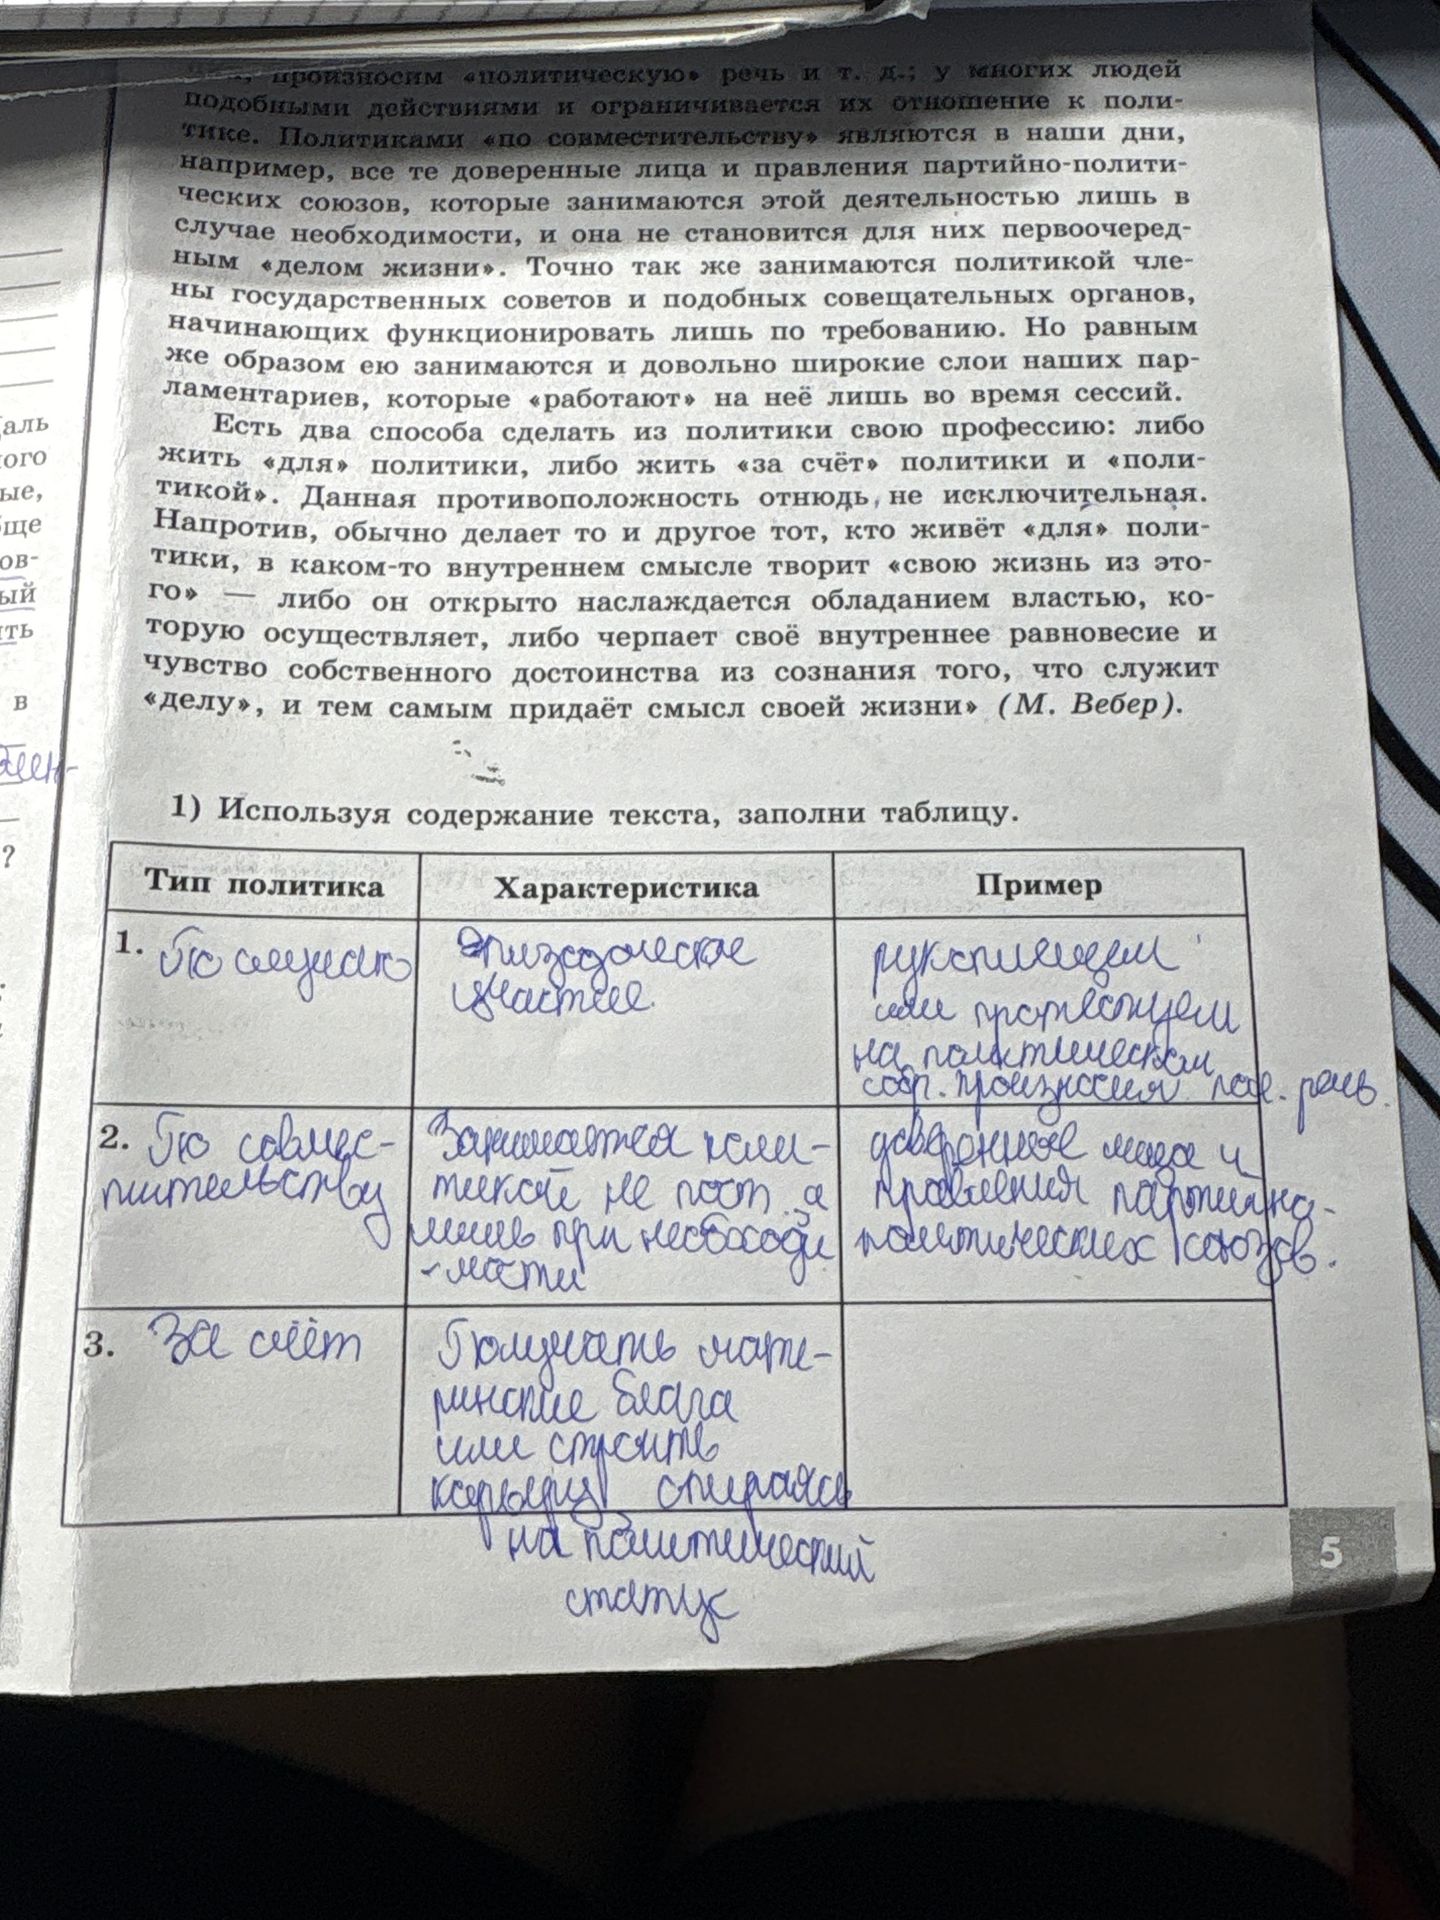 произносим «политическую» речь и т. д.; у многих людей
подобными действиями и ограничивается их отношение к поли-
тике. Политиками «по совместительству» являются в наши дни,
например, все те доверенные лица и правления партийно-полити-
ческих союзов, которые занимаются этой деятельностью лишь в
случае необходимости, и она не становится для них первоочеред-
ным «делом жизни». Точно так же занимаются политикой чле-
ны государственных советов и подобных совещательных органов,
начинающих функционировать лишь по требованию. Но равным
же образом ею занимаются и довольно широкие слои наших пар-
ламентариев, которые «работают» на неё лишь во время сессий.
Есть два способа сделать из политики свою профессию: либо
жить «для» политики, либо жить «за счёт» политики и «поли-
тикой». Данная противоположность отнюдь не исключительная.
Напротив, обычно делает то и другое тот, кто живёт «для» поли-
тики, в каком-то внутреннем смысле творит «свою жизнь из это-
го» — либо он открыто наслаждается обладанием властью, ко-
торую осуществляет, либо черпает своё внутреннее равновесие и
чувство собственного достоинства из сознания того, что служит
«делу», и тем самым придаёт смысл своей жизни» (М. Вебер).
1) Используя содержание текста, заполни таблицу.
Тип политика
Характеристика
Пример
1. По случаю
Эпизодическое
участие.
рукоплещем
или протестуем
на политическом
собр. произнося пол. речь.
2. По совмес-
тительству
Занимается поли-
тикой не пост. а
лишь при необходи
-мости
доверенные лица и
правления партийно-
политических союзов.
3. За счёт
Получать мате-
ринские блага
или строить
карьеру опираясь
на политический
статус
5
аль
ого
ые,
ще
ов-
ый
ть
в
?